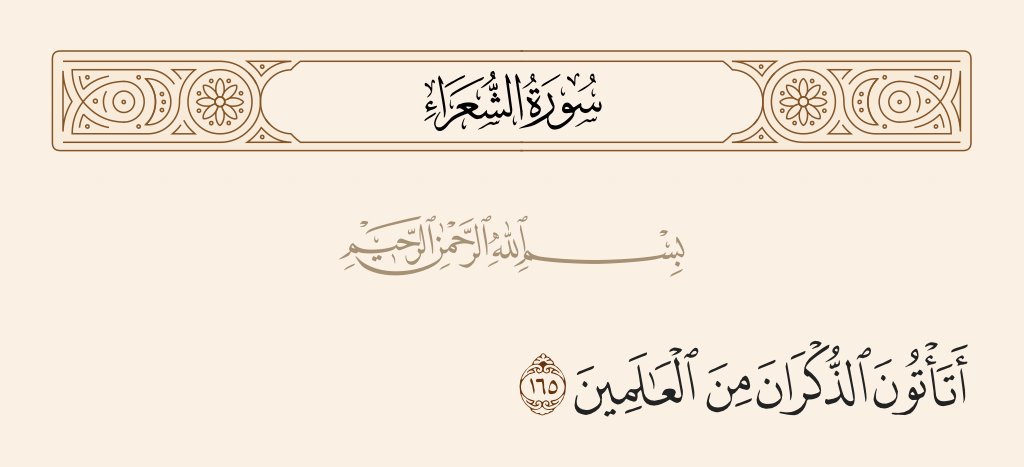 سُورَةُ الشُّعَرَاءِ
بِسْمِ ٱللَّهِ ٱلرَّحْمَٰنِ ٱلرَّحِيمِ
أَتَأْتُونَ ٱلذُّكْرَانَ مِنَ ٱلْعَٰلَمِينَ ١٦٥